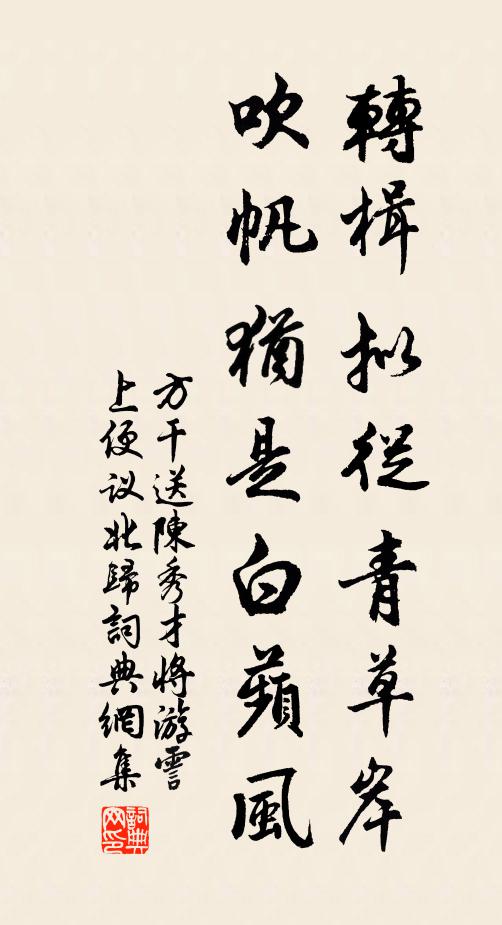 轉楫拟從青草岸
吹帆猶是白蘋風
方干送陳秀才將游霅
上便议北歸詞典網集
詞典網印